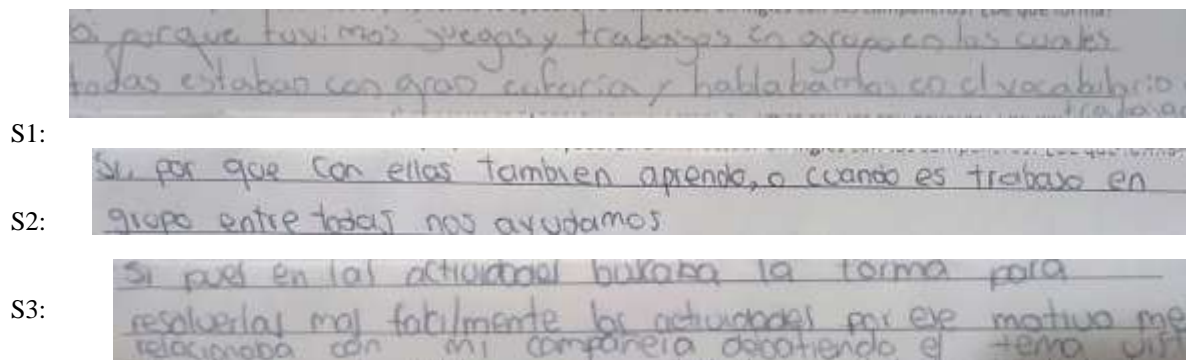 si porque tuvimos juegos y trabajos en grupo en las cuales
todas estaban con gran euforia y hablabamos con el vocabulario
trabajad
S1:
Si, por que con ellas tambien aprendo, o cuando es trabajo en
S2:
grupo entre todas nos ayudamos
Si pues en las actividades buscaba la forma para
S3:
resolverlas mas facilmente las actividades por ese motivo me
relacionaba con mi compañera debatiendo el tema vist